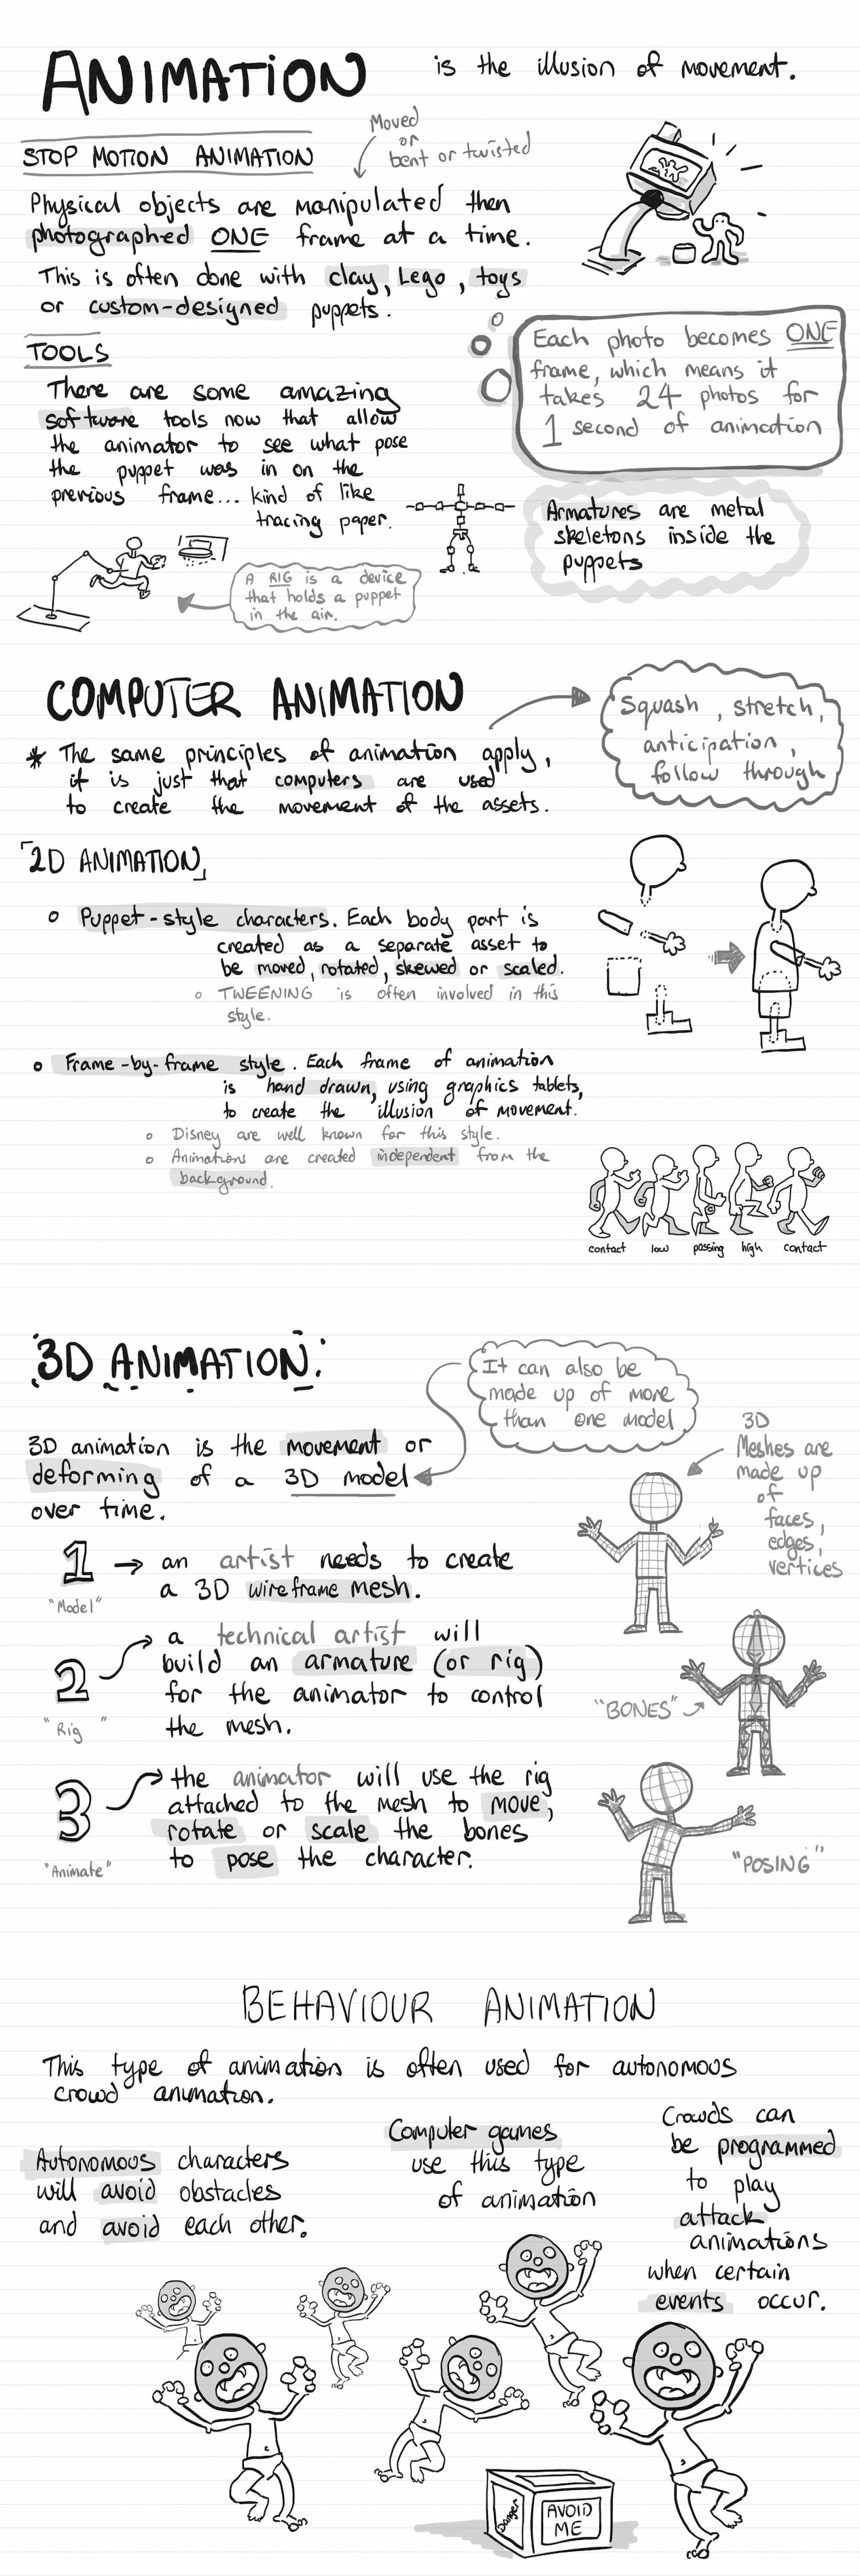 ANIMATION is the illusion of movement.
STOP MOTION ANIMATION
Moved
or
bent or twisted
Physical objects are manipulated then
photographed ONE frame at a time.
This is often done with clay, Lego, toys
or custom-designed puppets.
Each photo becomes ONE
frame, which means it
takes 24 photos for
1 second of animation
TOOLS
There are some amazing
software tools now that allow
the animator to see what pose
the puppet was in on the
previous frame... kind of like
tracing paper.
Armatures are metal
skeletons inside the
puppets
A RIG is a device
that holds a puppet
in the air.
COMPUTER ANIMATION
Squash, stretch,
anticipation,
follow through
* The same principles of animation apply,
it is just that computers are used
to create the movement of the assets.
2D ANIMATION
Puppet-style characters. Each body part is
created as a separate asset to
be moved, rotated, skewed or scaled.
TWEENING is often involved in this
style.
Frame-by-frame style. Each frame of animation
is hand drawn, using graphics tablets,
to create the illusion of movement.
Disney are well known for this style.
Animations are created independent from the
background.
contact low passing high contact
3D ANIMATION:
It can also be
made up of more
than one model
3D animation is the movement or
deforming of a 3D model
over time.
3D
Meshes are
made up
of
faces,
edges,
vertices
1 → an artist needs to create
a 3D wireframe mesh.
"Model"
2 a technical artist will
build an armature (or rig)
for the animator to control
the mesh.
"Rig"
"BONES"
3 the animator will use the rig
attached to the mesh to move,
rotate or scale the bones
to pose the character.
"Animate"
"POSING"
BEHAVIOUR ANIMATION
This type of animation is often used for autonomous
crowd animation.
Autonomous characters
will avoid obstacles
and avoid each other.
Computer games
use this type
of animation
Crowds can
be programmed
to play
attack
animations
when certain
events occur.
Danger
AVOID
ME